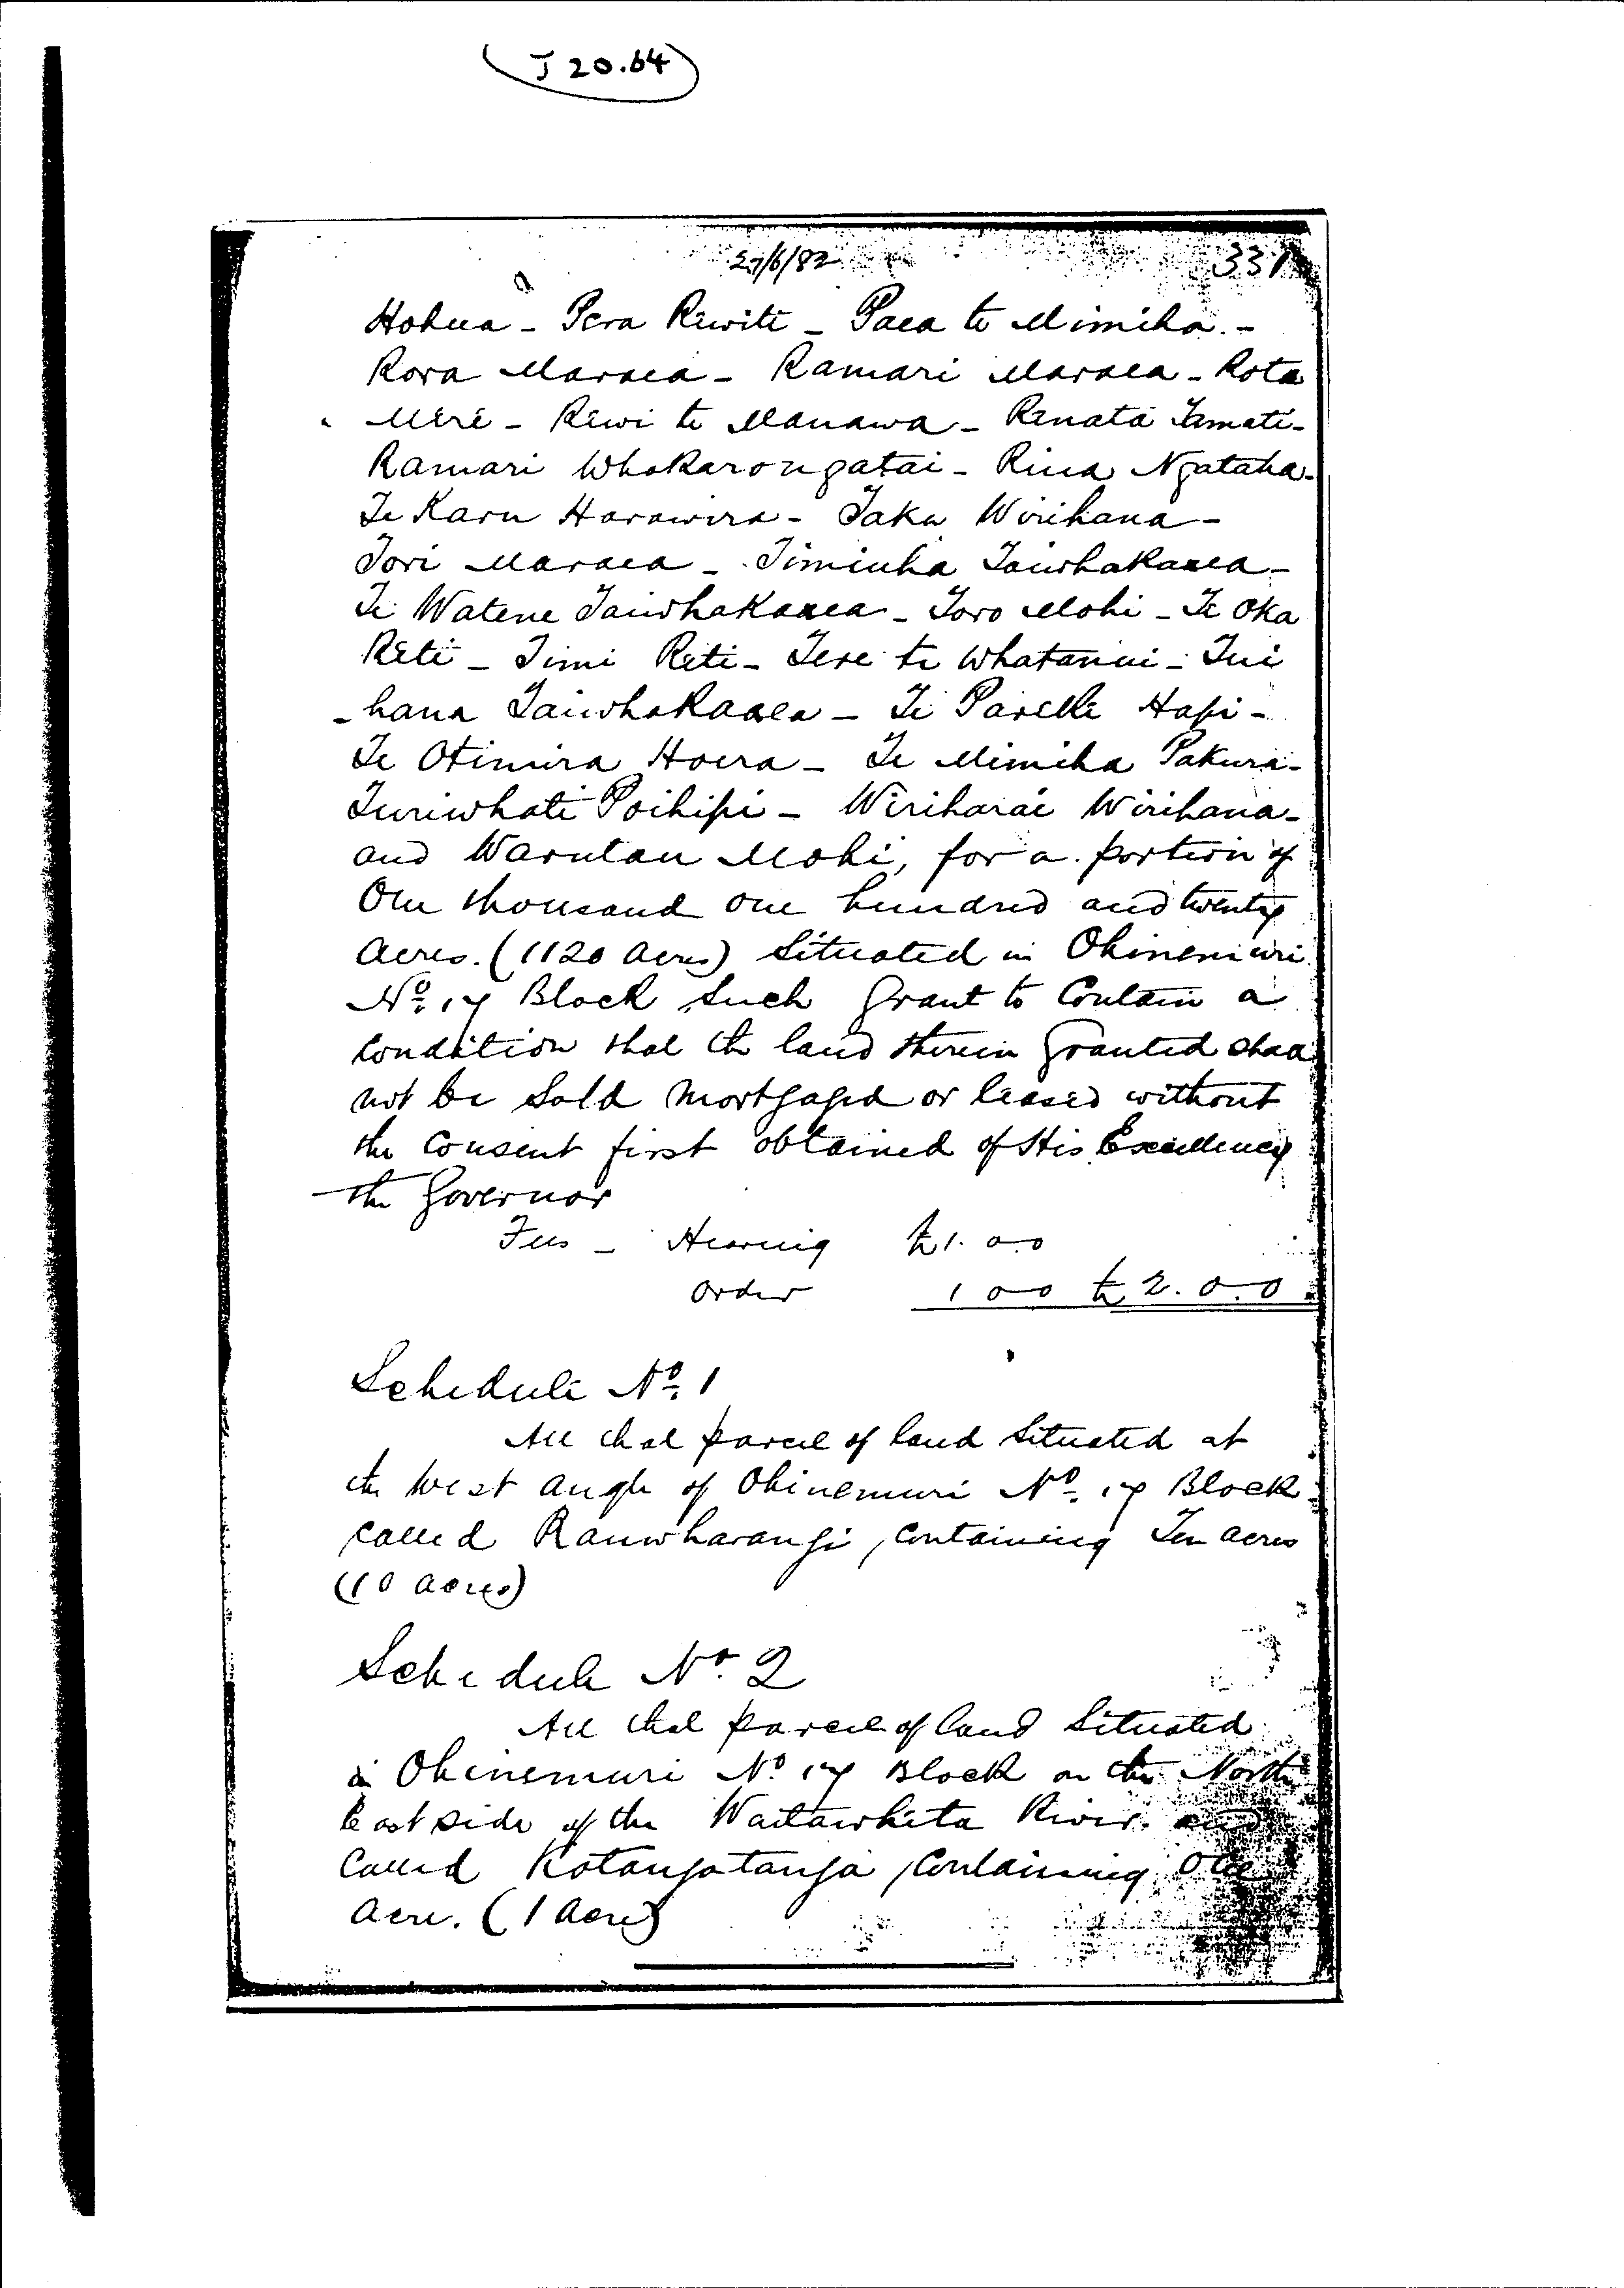 J 20.64
27/6/82
331
Hohua - Pera Rewiti - Paea te Mimiha -
Rora Maraea - Ramari Maraea - Rota
Mere - Rewi te Manawa - Renata Tamati -
Ramari Whakarongatai - Riua Ngataha -
Te Karu Harawira - Taku Wirihana -
Tori Maraea - Timiuha Taiwhakaaea -
Te Watene Taiwhakaaea - Toro Mohi - Te Oka
Reti - Timi Reti - Tere te Whatanui - Tui
- hana Taiwhakaaea - Te Hapi -
Te Otimira Hoera - Te Mimiha Pakura -
Turiwhati Poihipi - Wiriharai Wirihana -
and Warutau Mohi, for a portion of
One thousand one hundred and twenty
acres. (1120 acres) Situated in Ohinemuri
No. 17 Block Such Grant to Contain a
Condition that the land therein Granted shall
not be Sold Mortgaged or leased without
the Consent first obtained of His Excellency
the Governor
Fees - Hearing £1. 0.0
Order 1 0 0 £2. 0.0
Schedule No. 1
All that parcel of land Situated at
the West angle of Ohinemuri No. 17 Block
called Rauwharangi, Containing Ten acres
(10 acres)
Schedule No. 2
All that parcel of land Situated
in Ohinemuri No. 17 Block on the North
East side of the Waitawhita River and
Called Kotangatanga, Containing One
acre. (1 acre)